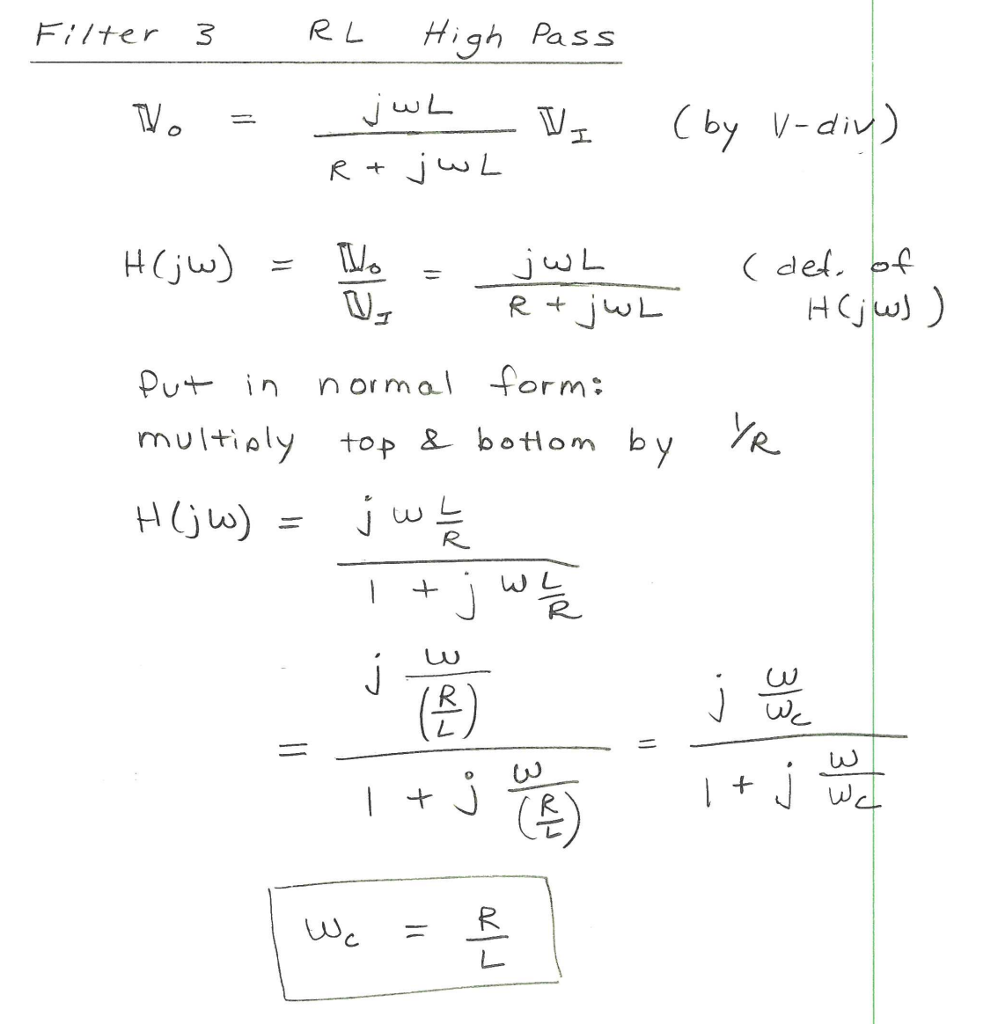 Filter 3 RL High Pass
𝕍o = jωL / (R + jωL) 𝕍I (by V-div)
H(jω) = 𝕍o / 𝕍I = jωL / (R + jωL) (def. of H(jω))
Put in normal form:
multiply top & bottom by 1/R
H(jω) = (jω L/R) / (1 + jω L/R)
= (j ω/(R/L)) / (1 + j ω/(R/L)) = (j ω/ωc) / (1 + j ω/ωc)
ωc = R/L